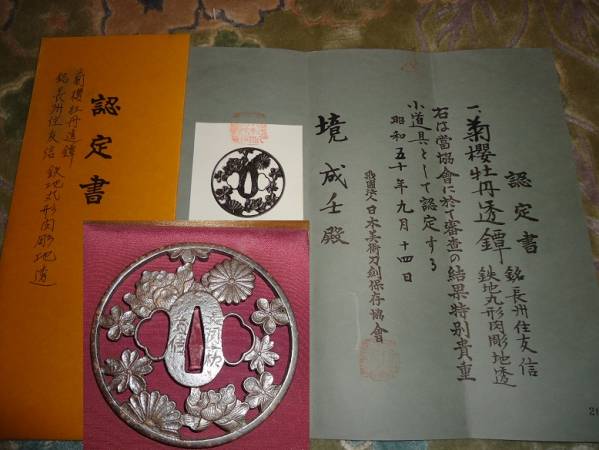 認定書
一、菊櫻牡丹透鐔 銘 長州住友信
鉄地丸形肉彫地透
右は當協會に於て審査の結果特別貴重
小道具として認定する
昭和五十年九月十四日
財團法人日本美術刀劍保存協會
境成壬殿
認定書
菊櫻牡丹透鐔
銘長州住友信 鉄地丸形肉彫地透
長州住
友信